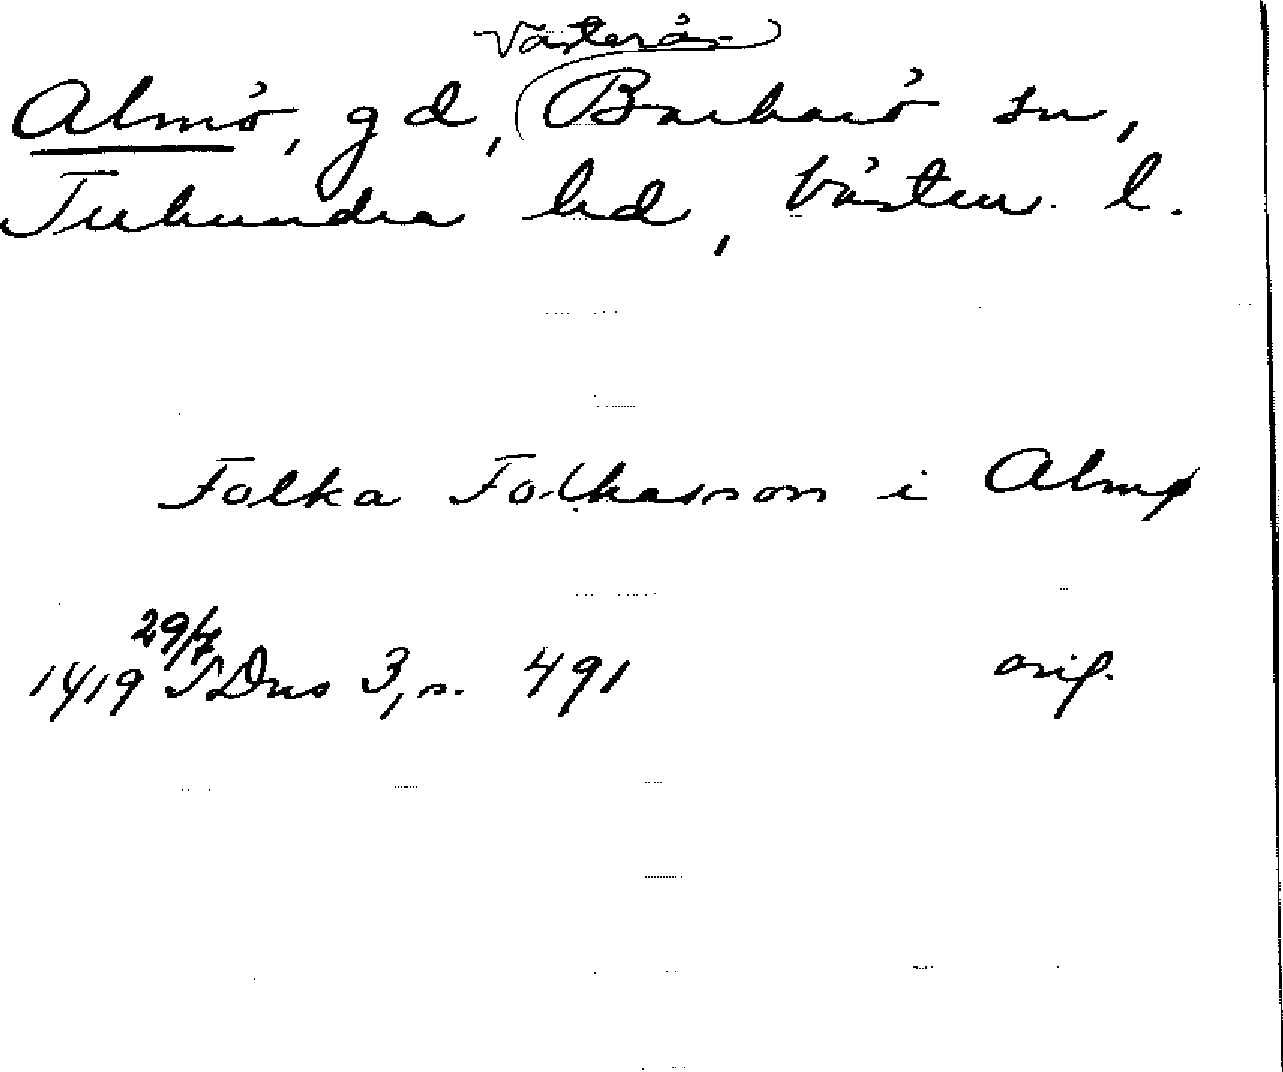 Västerås
Almö, gd, Barkarö sn,
Tuhundra hd, Västm. l.
Folka Folkasson i Almø
1419 29/7 SDns 3, s. 491 orig.